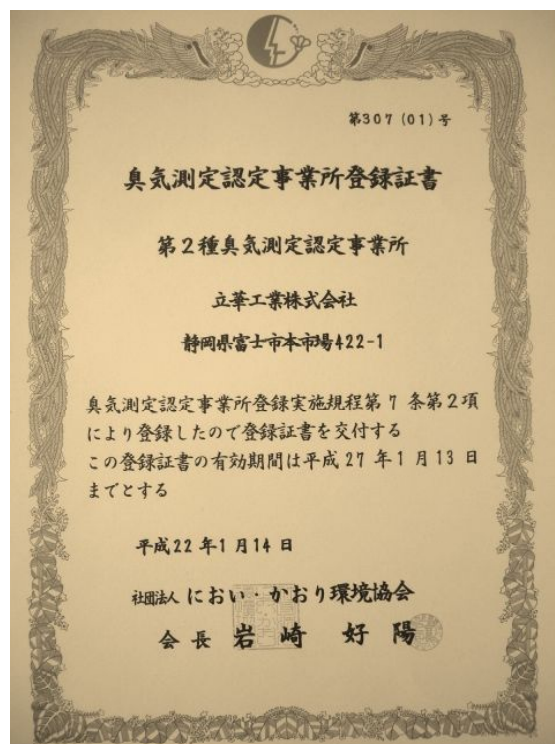 第307(01)号
臭気測定認定事業所登録証書
第2種臭気測定認定事業所
立華工業株式会社
静岡県富士市本市場422-1
臭気測定認定事業所登録実施規程第7条第2項
により登録したので登録証書を交付する
この登録証書の有効期間は平成27年1月13日
までとする
平成22年1月14日
社団法人におい・かおり環境協会
会長 岩崎 好陽